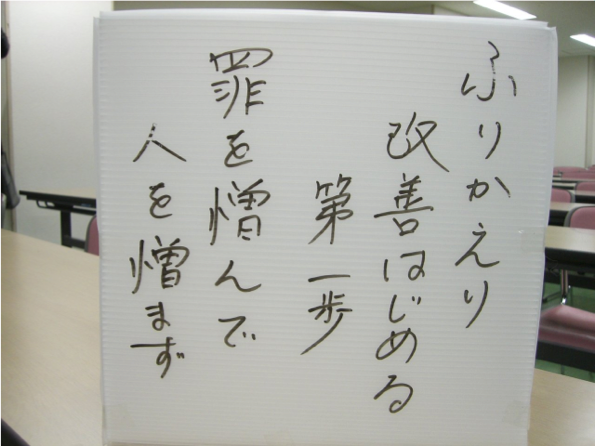 ふりかえり
改善はじめる
第一歩
罪を憎んで
人を憎まず